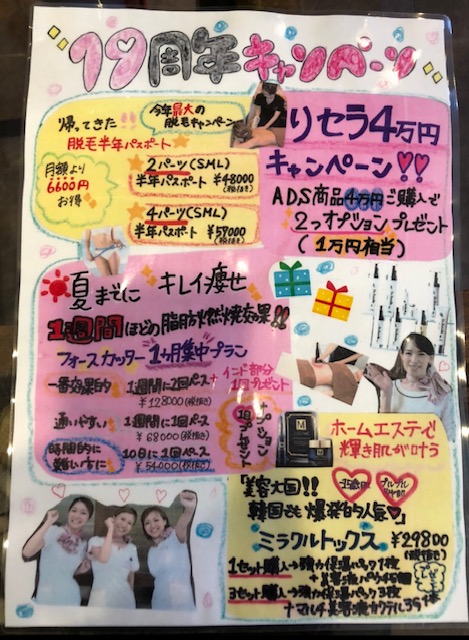 19周年キャンペーン
今年最大の
脱毛キャンペーン
帰ってきた
脱毛半年パスポート
月額より
6600円
お得
2パーツ(SML)
半年パスポート ¥48000
(税抜き)
4パーツ(SML)
半年パスポート ¥57000
(税抜き)
りセラ4万円
キャンペーン!!
ADS商品4万円ご購入で
2つオプションプレゼント
(1万円相当)
夏までに キレイ痩せ
1週間ほどの脂肪燃焼効果!!
フォースカッター1ヵ月集中プラン
一番効果的 1週間に2回ペース
¥128000(税抜き)
インド部分
1回プレゼント
通いやすい 1週間に1回ペース
¥68000(税抜き)
時間的に
難しい方に
10日に1回ペース
¥54000(税抜き)
オプション
1回プレゼント
ホームエステで
輝き肌が叶う
美容大国!!
韓国でも爆発的人気
ミラクルトックス ¥29800
(税抜き)
1セット購入→強力保湿パック1枚
3セット購入→強力保湿パック3枚